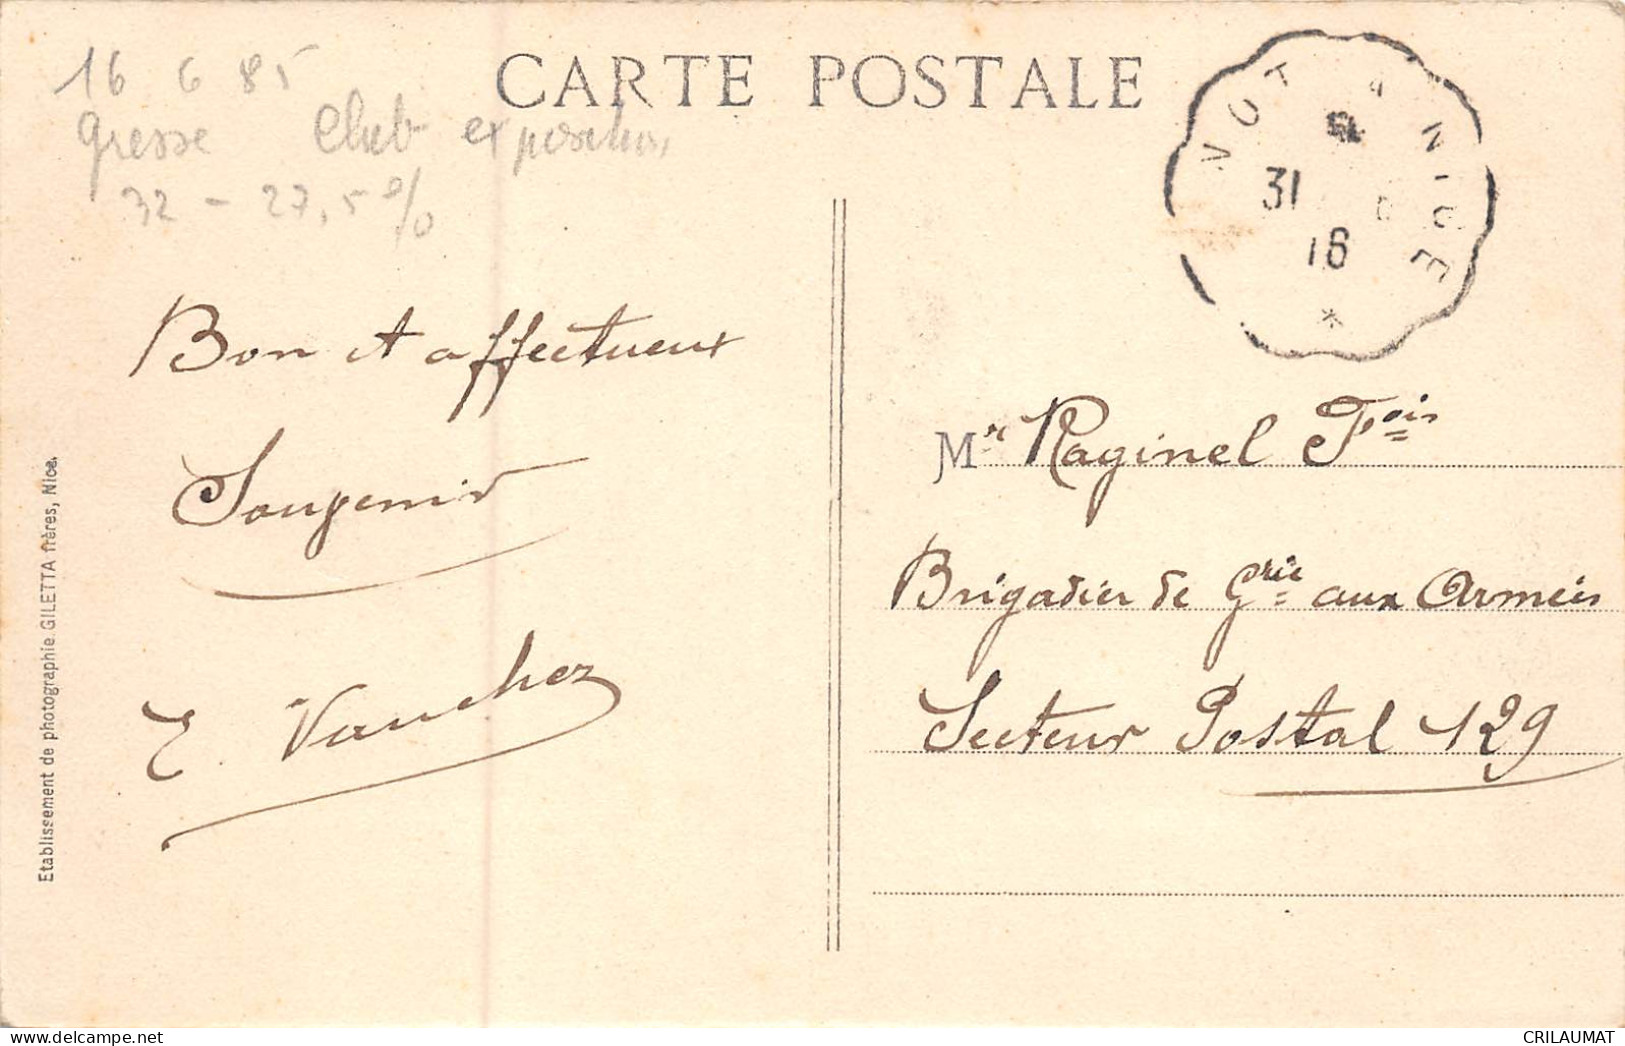 CARTE POSTALE
16 6 85
Club exposition
32 - 27,5 %
31
16
NICE
*
Bon et affectueux
Souvenir
E. Vauchez
Mr Raginel Fois
Brigadier de Grie aux Armées
Secteur Postal 129
Etablissement de photographie GILETTA frères, Nice.
www.delcampe.net
CRILAUMAT